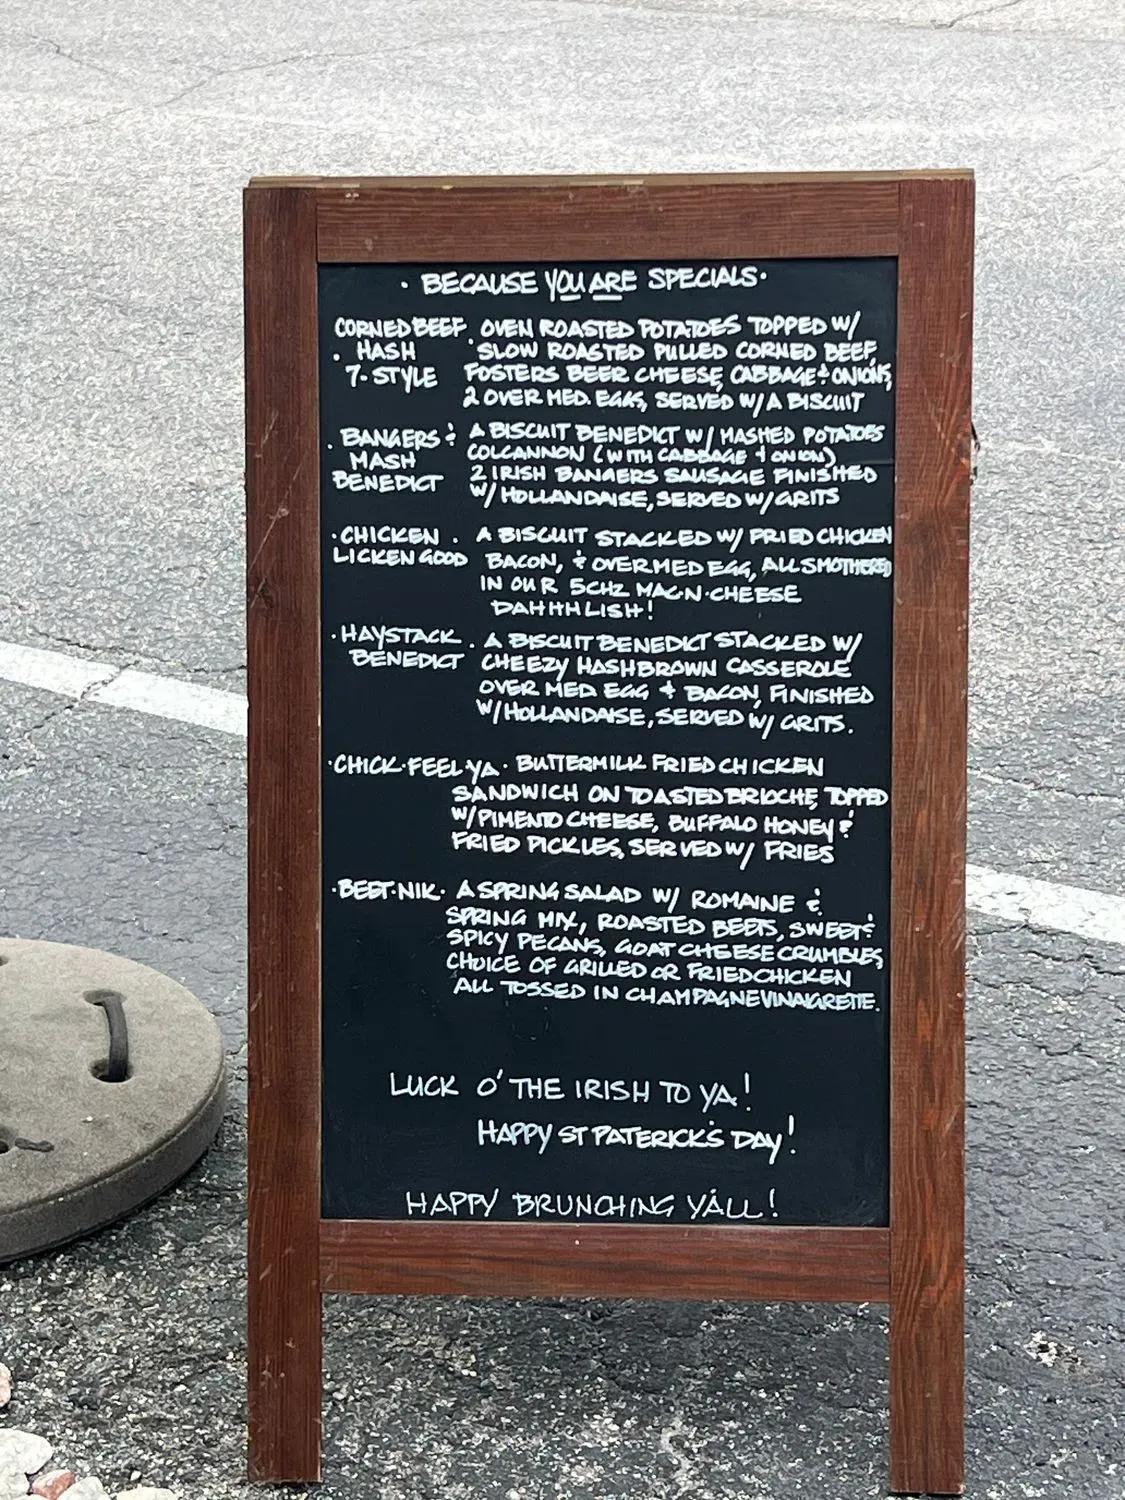 · BECAUSE YOU ARE SPECIALS ·
CORNED BEEF . OVEN ROASTED POTATOES TOPPED W/
. HASH SLOW ROASTED PULLED CORNED BEEF,
7-STYLE FOSTERS BEER CHEESE, CABBAGE & ONIONS,
2 OVER MED. EGGS, SERVED W/ A BISCUIT
. BANGERS & A BISCUIT BENEDICT W/ MASHED POTATOES
MASH COLCANNON (WITH CABBAGE + ONION)
BENEDICT 2 IRISH BANGERS SAUSAGE FINISHED
W/ HOLLANDAISE, SERVED W/ GRITS
· CHICKEN . A BISCUIT STACKED W/ FRIED CHICKEN
LICKEN GOOD BACON, & OVER MED EGG, ALL SMOTHERED
IN OUR 5 CHZ MAC·N·CHEESE
DAHHHLISH!
· HAYSTACK . A BISCUIT BENEDICT STACKED W/
BENEDICT CHEEZY HASHBROWN CASSEROLE
OVER MED EGG + BACON, FINISHED
W/ HOLLANDAISE, SERVED W/ GRITS.
· CHICK·FEEL YA · BUTTERMILK FRIED CHICKEN
SANDWICH ON TOASTED BRIOCHE, TOPPED
W/ PIMENTO CHEESE, BUFFALO HONEY &
FRIED PICKLES, SERVED W/ FRIES
· BEET·NIK · A SPRING SALAD W/ ROMAINE &
SPRING MIX, ROASTED BEETS, SWEET &
SPICY PECANS, GOAT CHEESE CRUMBLES,
CHOICE OF GRILLED OR FRIED CHICKEN
ALL TOSSED IN CHAMPAGNE VINAIGRETTE.
LUCK O' THE IRISH TO YA!
HAPPY ST PATERICK'S DAY!
HAPPY BRUNCHING YÁLL!